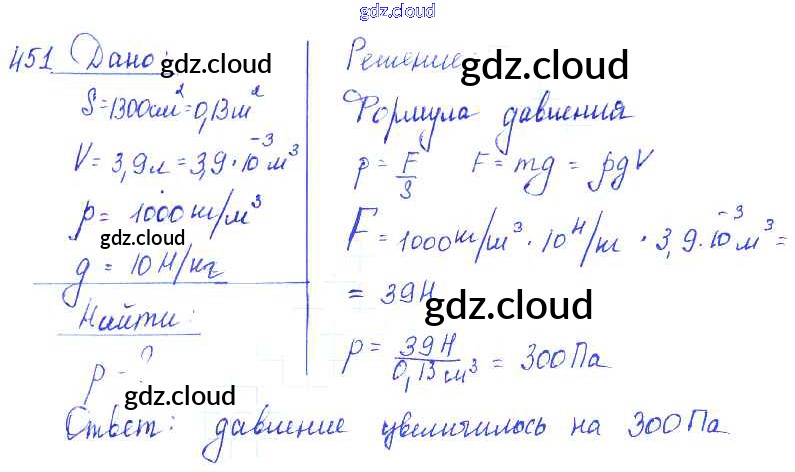 gdz.cloud
451 Дано:
gdz.cloud
S=1300см²=0,13м²
V=3,9л=3,9·10⁻³м³
ρ=1000кг/м³
gdz.cloud
g=10Н/кг
Найти:
gdz.cloud
p-?
gdz.cloud
Решение:
gdz.cloud
Формула давления
p=F/S F=mg=ρgV
gdz.cloud
F=1000кг/м³·10Н/кг·3,9·10⁻³м³=
=39Н
gdz.cloud
p=39Н/0,13см³=300Па
Ответ: давление увеличилось на 300Па
gdz.cloud